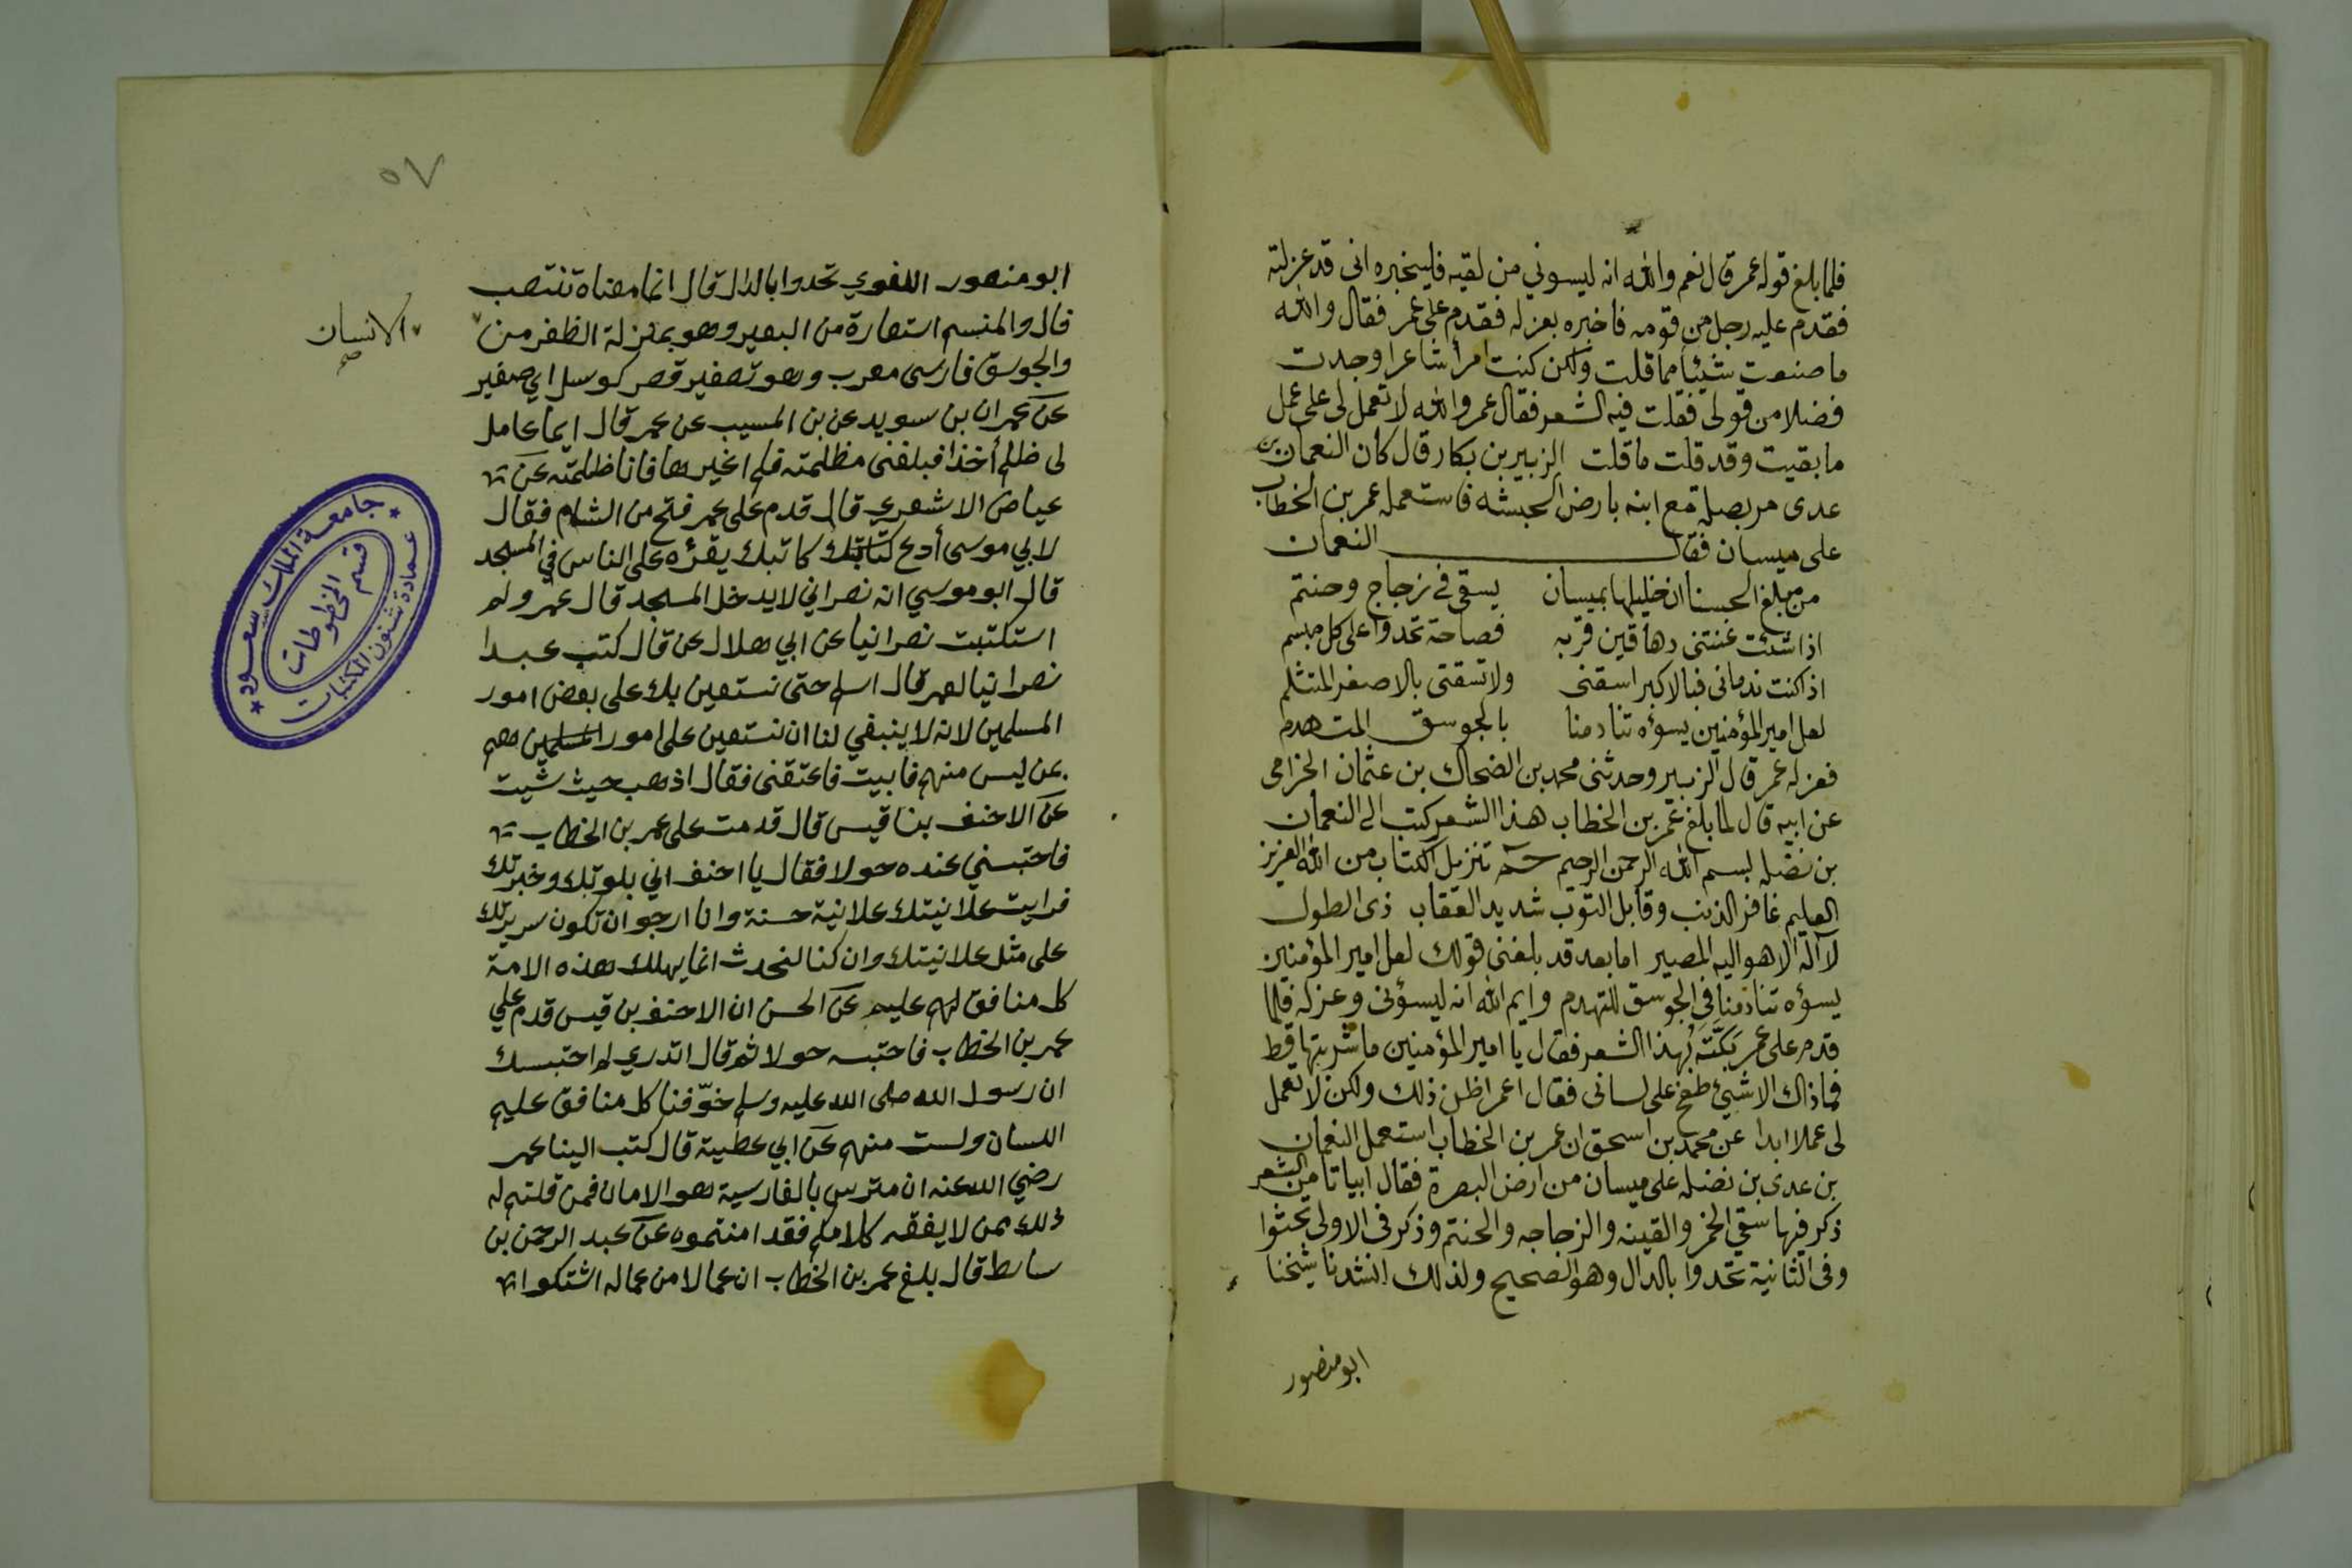 فلما بلغ قوله عمر قال نعم والله انه ليسوني من لقيه فليخبره انى قد عزلته
فقدم عليه رجل من قومه فاخبره بعزله فقدم على عمر فقال والله
ما صنعت شيئا مما قلت ولكن كنت امرأ شاعرا وجدت
فضلا من قولى فقلت فيه الشعر فقال عمر والله لا تعمل لى على عمل
ما بقيت وقد قلت ما قلت الزبير بن بكار قال كان النعمان بن
عدى مع ابيه بارض الحبشه فاستعمله عمر بن الخطاب
على ميسان فقال النعمان
من مبلغ الحسنا ان خليلها بميسان يسقى فى زجاج وحنتم
اذا شئت غنتنى دهاقين قربه فصاحة تحدوا على كل مبسم
اذا كنت ندمانى فبالاكبر اسقنى ولا تسقنى بالاصغر المتثلم
لعل امير المؤمنين يسؤه تنادمنا بالجوسق المتهدم
فعزله عمر قال الزبير وحدثنى محمد بن الضحاك بن عثمان الحزامى
عن ابيه قال لما بلغ عمر بن الخطاب هذا الشعر كتب الى النعمان
بن نضله بسم الله الرحمن الرحيم حم تنزيل الكتاب من الله العزيز
العليم غافر الذنب وقابل التوب شديد العقاب ذى الطول
لا آله الا هو اليه المصير اما بعد قد بلغنى قولك لعل امير المؤمنين
يسؤه تنادمنا فى الجوسق المتهدم وايم الله انه ليسؤنى وعزله فلما
قدم على عمر بَكَّتَهُ بهذا الشعر فقال يا امير المؤمنين ما شربتها قط
فما ذاك الا شيئ طفح على لسانى فقال اعمر اظن ذلك ولكن لا تعمل
لى عملا ابدا عن محمد بن اسحق ان عمر بن الخطاب استعمل النعمان
بن عدى بن نضله على ميسان من ارض البصرة فقال ابياتا من الشعر
ذكر فيها سقي الخمر والقينه والزجاجه والحنتم وذكر فى الاولى تجثوا
وفى الثانية تحدوا بالدال وهو الصحيح ولذلك انشدنا شيخنا
ابو منصور
٥٧
ابو منصور اللغوي تحدوا بالدال قال انما معناه تنتصب
قال والمنسم استعارة من البعير وهو بمنزلة الظفر من
الانسان
صح
والجوسق فارسى معرب وهو تصغير قصر كوسل اي صغير
عن عمران بن سويد عن بن المسيب عن عمر قال ايما عامل
لى ظلم أخذا فبلغنى مظلمته فلم اغيرها فانا ظلمته عن
عياض الاشعري قال قدم على عمر فتح من الشام فقال
لابي موسى أدع كاتبك يقرؤه على الناس في المسجد
قال ابو موسي انه نصراني لا يدخل المسجد قال عمر ولم
استكتبت نصرانيا عن ابي هلال عن قال كنت عبدا
نصرانيا لعمر قال اسلم حتى نستعين بك على بعض امور
المسلمين لانه لا ينبغي لنا ان نستعين على امور المسلمين معهم
عن ليس منهم فابيت فاعتقنى فقال اذهب حيث شيت
عن الاحنف بن قيس قال قدمت على عمر بن الخطاب
فاحتبسني عنده حولا فقال يا احنف اني بلوتك وخبرتك
فرايت علانيتك علانية حسنة وانا ارجو ان تكون سريرتك
على مثل علانيتك وان كنا لنحدث انما يهلك هذه الامة
كل منافق لهم عليم عن الحسن ان الاحنف بن قيس قدم علي
عمر بن الخطاب فاحتبسه حولا ثم قال اتدري لم احتبستك
ان رسول الله صلى الله عليه وسلم خوّفنا كل منافق عليم
اللسان ولست منهم عن ابي عطية قال كتب الينا عمر
رضي الله عنه ان مترس بالفارسية هو الامان فمن قلتم له
ذلك ممن لا يفقه كلامكم فقد امنتموه عن عبد الرحمن بن
سابط قال بلغ عمر بن الخطاب ان عمالا من عماله اشتكوا
جامعة الملك سعود
قسم المخطوطات
عمادة شئون المكتبات